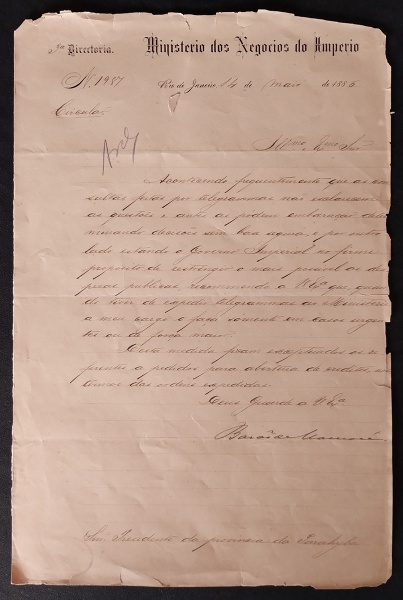 3ª Directoria. Ministerio dos Negocios do Imperio
N. 1987 Rio de Janeiro, 14 de Maio de 1886
Circular
Illmo e Exmo Snr
Acontecendo frequentemente que as con
sultas feitas por telegrammas não esclarecem
as questões e antes as podem embaraçar, deter
minando decisão sem boa e por outro
lado estando o Governo Imperial no firme
proposito de restringir o mais possivel as des
pezas publicas, recommendo a V. Exª que quan
do tiver de expedir telegrammas ao Ministerio
a meu cargo o faça somente em casos urgen
tes ou de força maior.
medida ficam exceptuados os re
ferentes a pedidos para abertura de creditos, em
das ordens expedidas.
Deus Guarde a V. Exª
Barão de Mamoré
Snr. Presidente da provincia da Parahyba